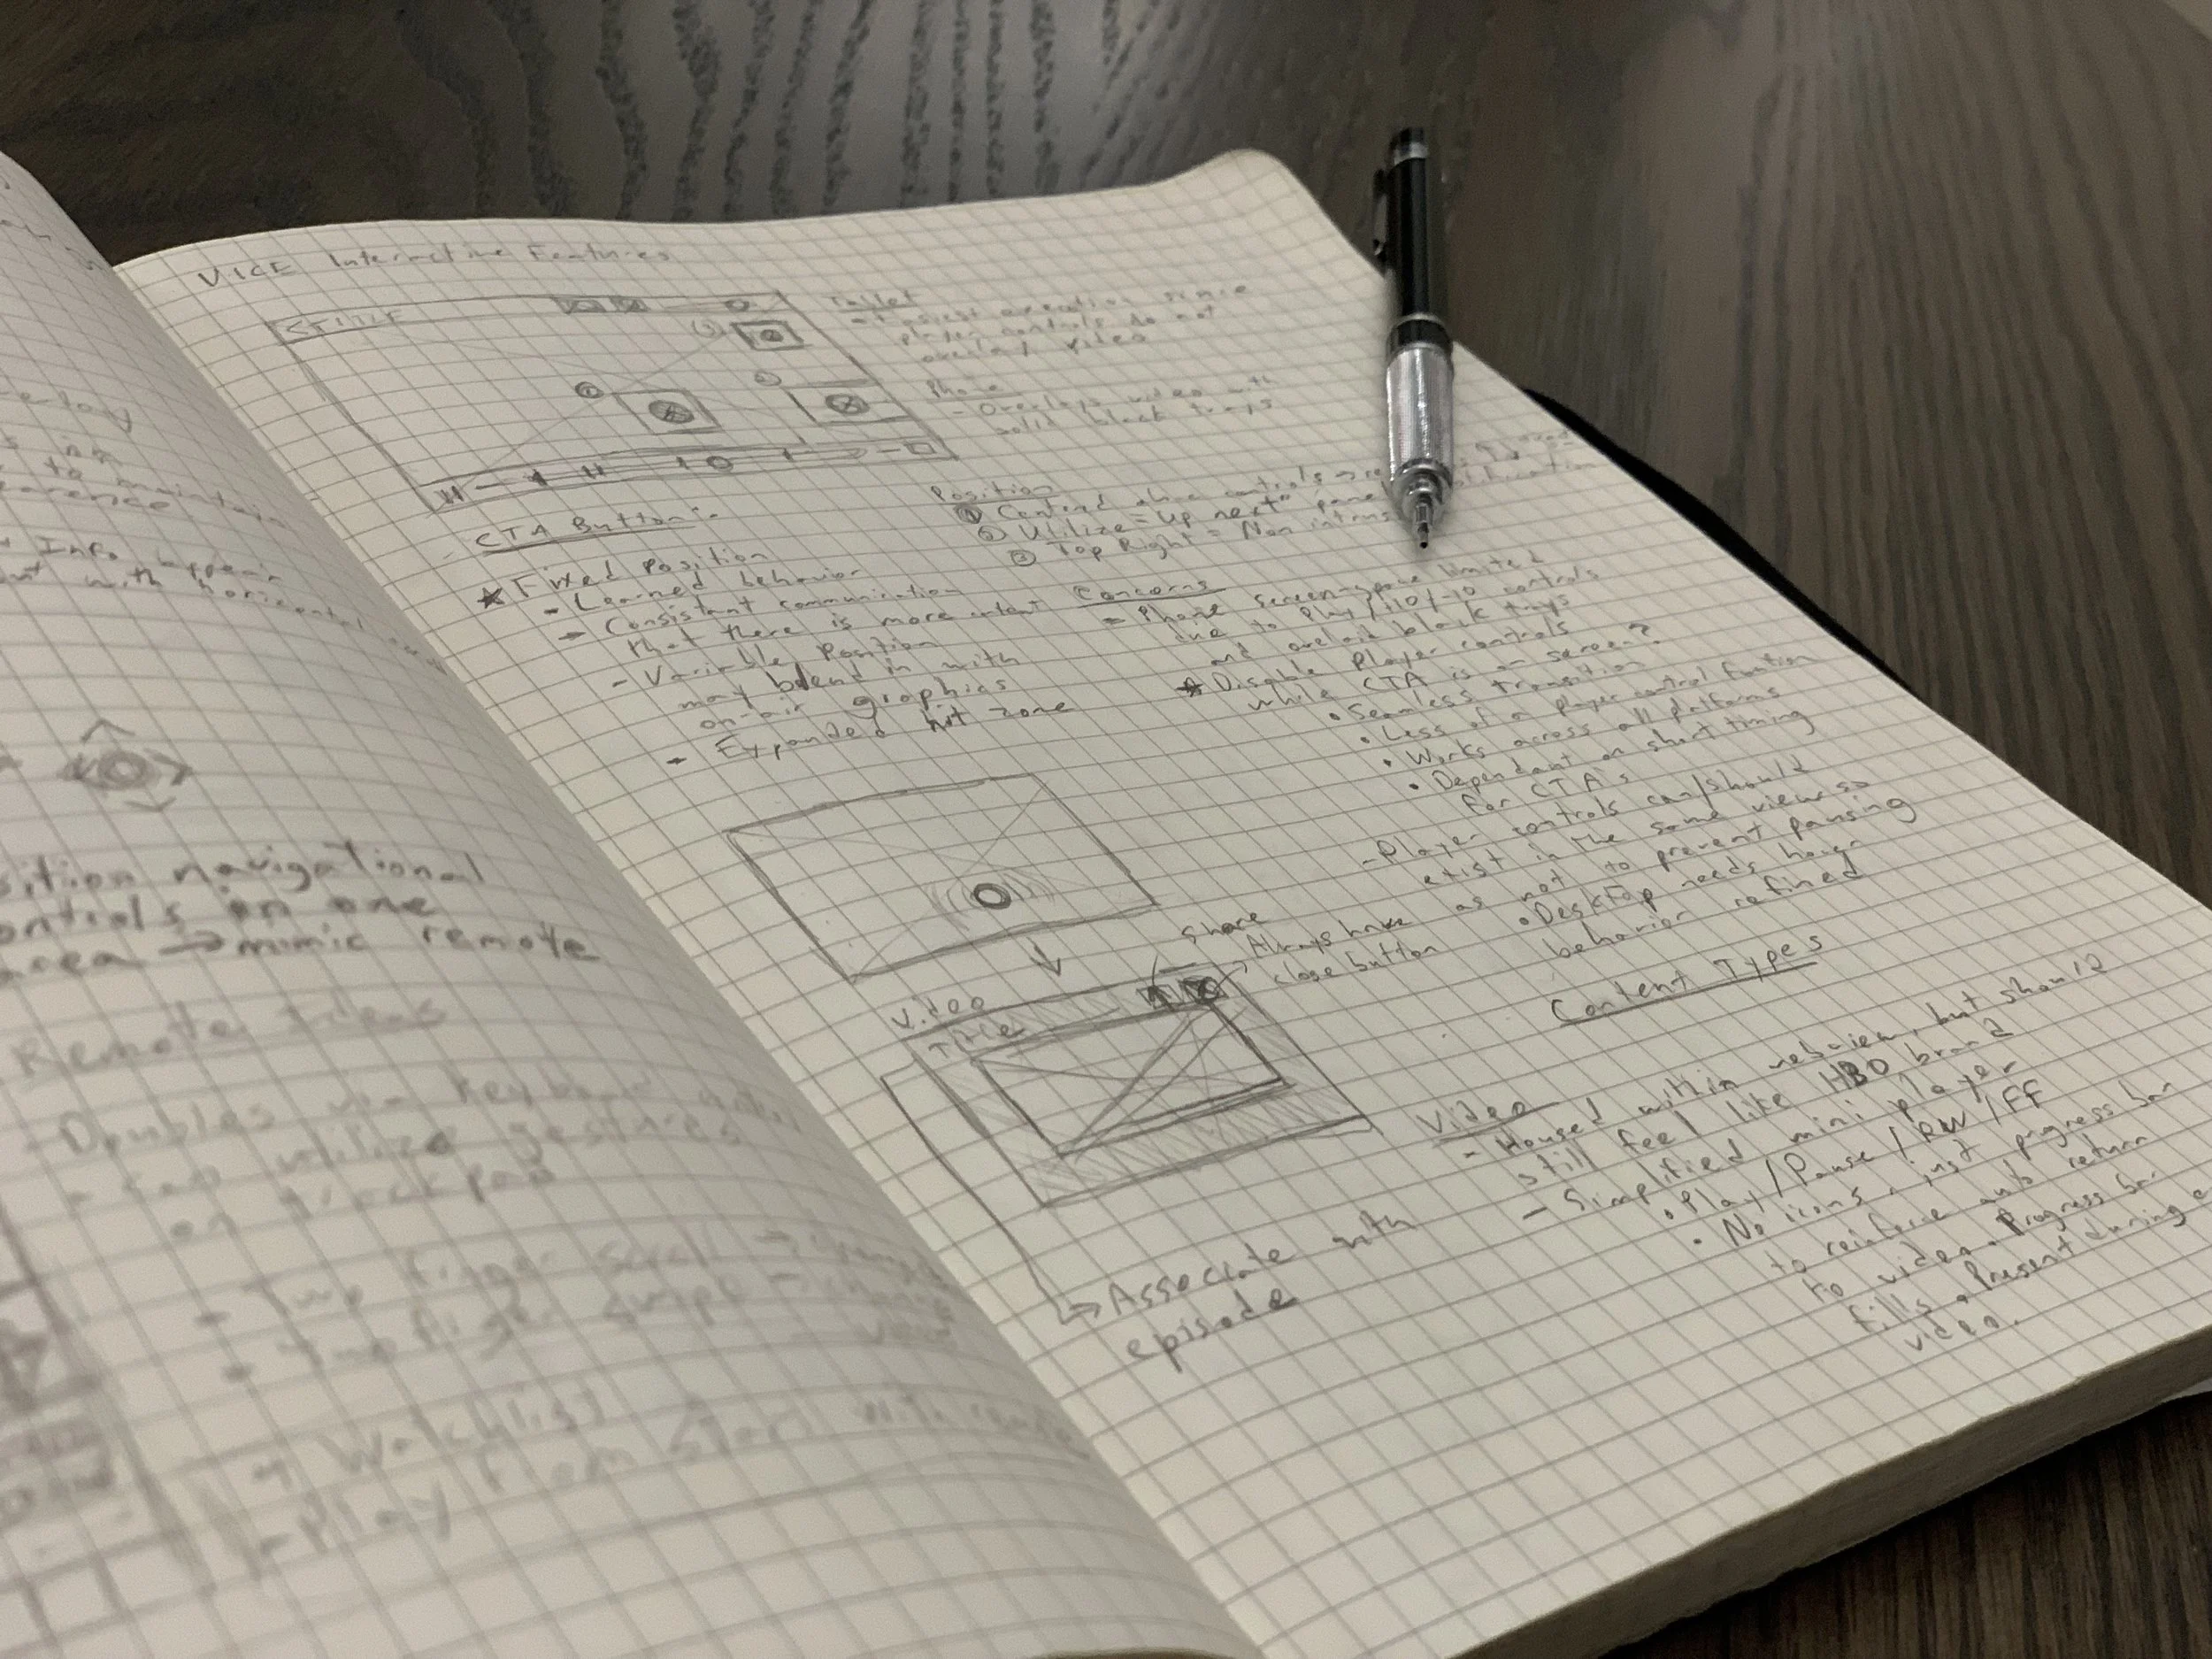 VICE Interactive Features
TITLE
Tablet
- Easiest execution since
player controls do not
overlay video
Phone
- Overlays video with
solid black trays
Position
① Centered above controls →
② Utilize "Up next" panel
③ Top Right = Non intrus
CTA Button:
★ Fixed Position
- Learned behavior
- Consistant communication
that there is more content
- Variable Position
may blend in with
on-air graphics
- Expanded hit zone
Concerns
- Phone screenspace limited
due to Play/+10/-10 controls
and overlaid black trays
★ Disable Player controls
while CTA is on screen?
• Seamless transition
• Less of a player control funtion
• Works across all platforms
• Dependant on short timing
for CTA's
- Player controls can/should
exist in the same view so
as not to prevent pausing
• Desktop needs hover
behavior refined
Share
Always have
close button
Video
Title
Associate with
episode
Content Types
Video
- Housed within webview, but should
still feel like HBO brand
- Simplified mini player
• Play/Pause/RW/FF
• No icons, just progress bar
to reinforce auto return
to video. Progress bar
fills. Present during
video.
verlay
to maintain
Info appear
with horizontal
sition navigational
ontrols on one
area → mimic remote
Remote Ideas
- Doubles via keyboard
- can utilize gestures
on trackpad
- Two finger scroll →
- Two finger swipe → change
view
Watchlist
- Play from Start with